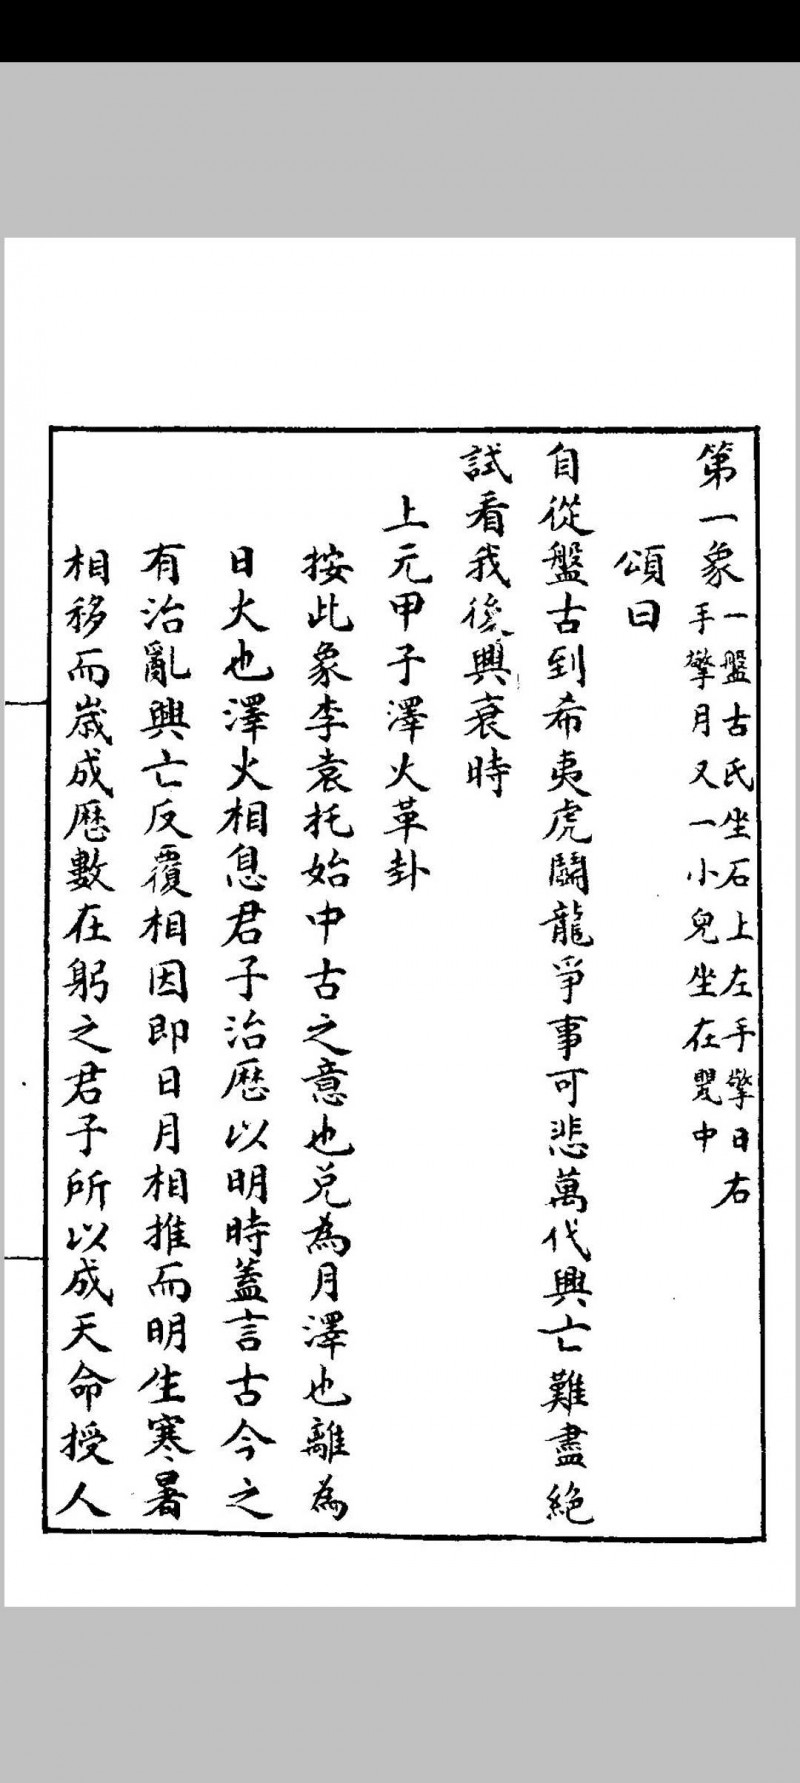 第一象
一盤古氏坐石上左手擎日右
手擎月又一小兒坐在甖中
頌曰
自從盤古到希夷虎鬭龍爭事可悲萬代興亡難盡絕
試看我後興衰時
上元甲子澤火革卦
按此象李袁托始中古之意也兌為月澤也離為
日火也澤火相息君子治歷以明時蓋言古今之
有治亂興亡反覆相因即日月相推而明生寒暑
相移而歲成歷數在躬之君子所以成天命授人